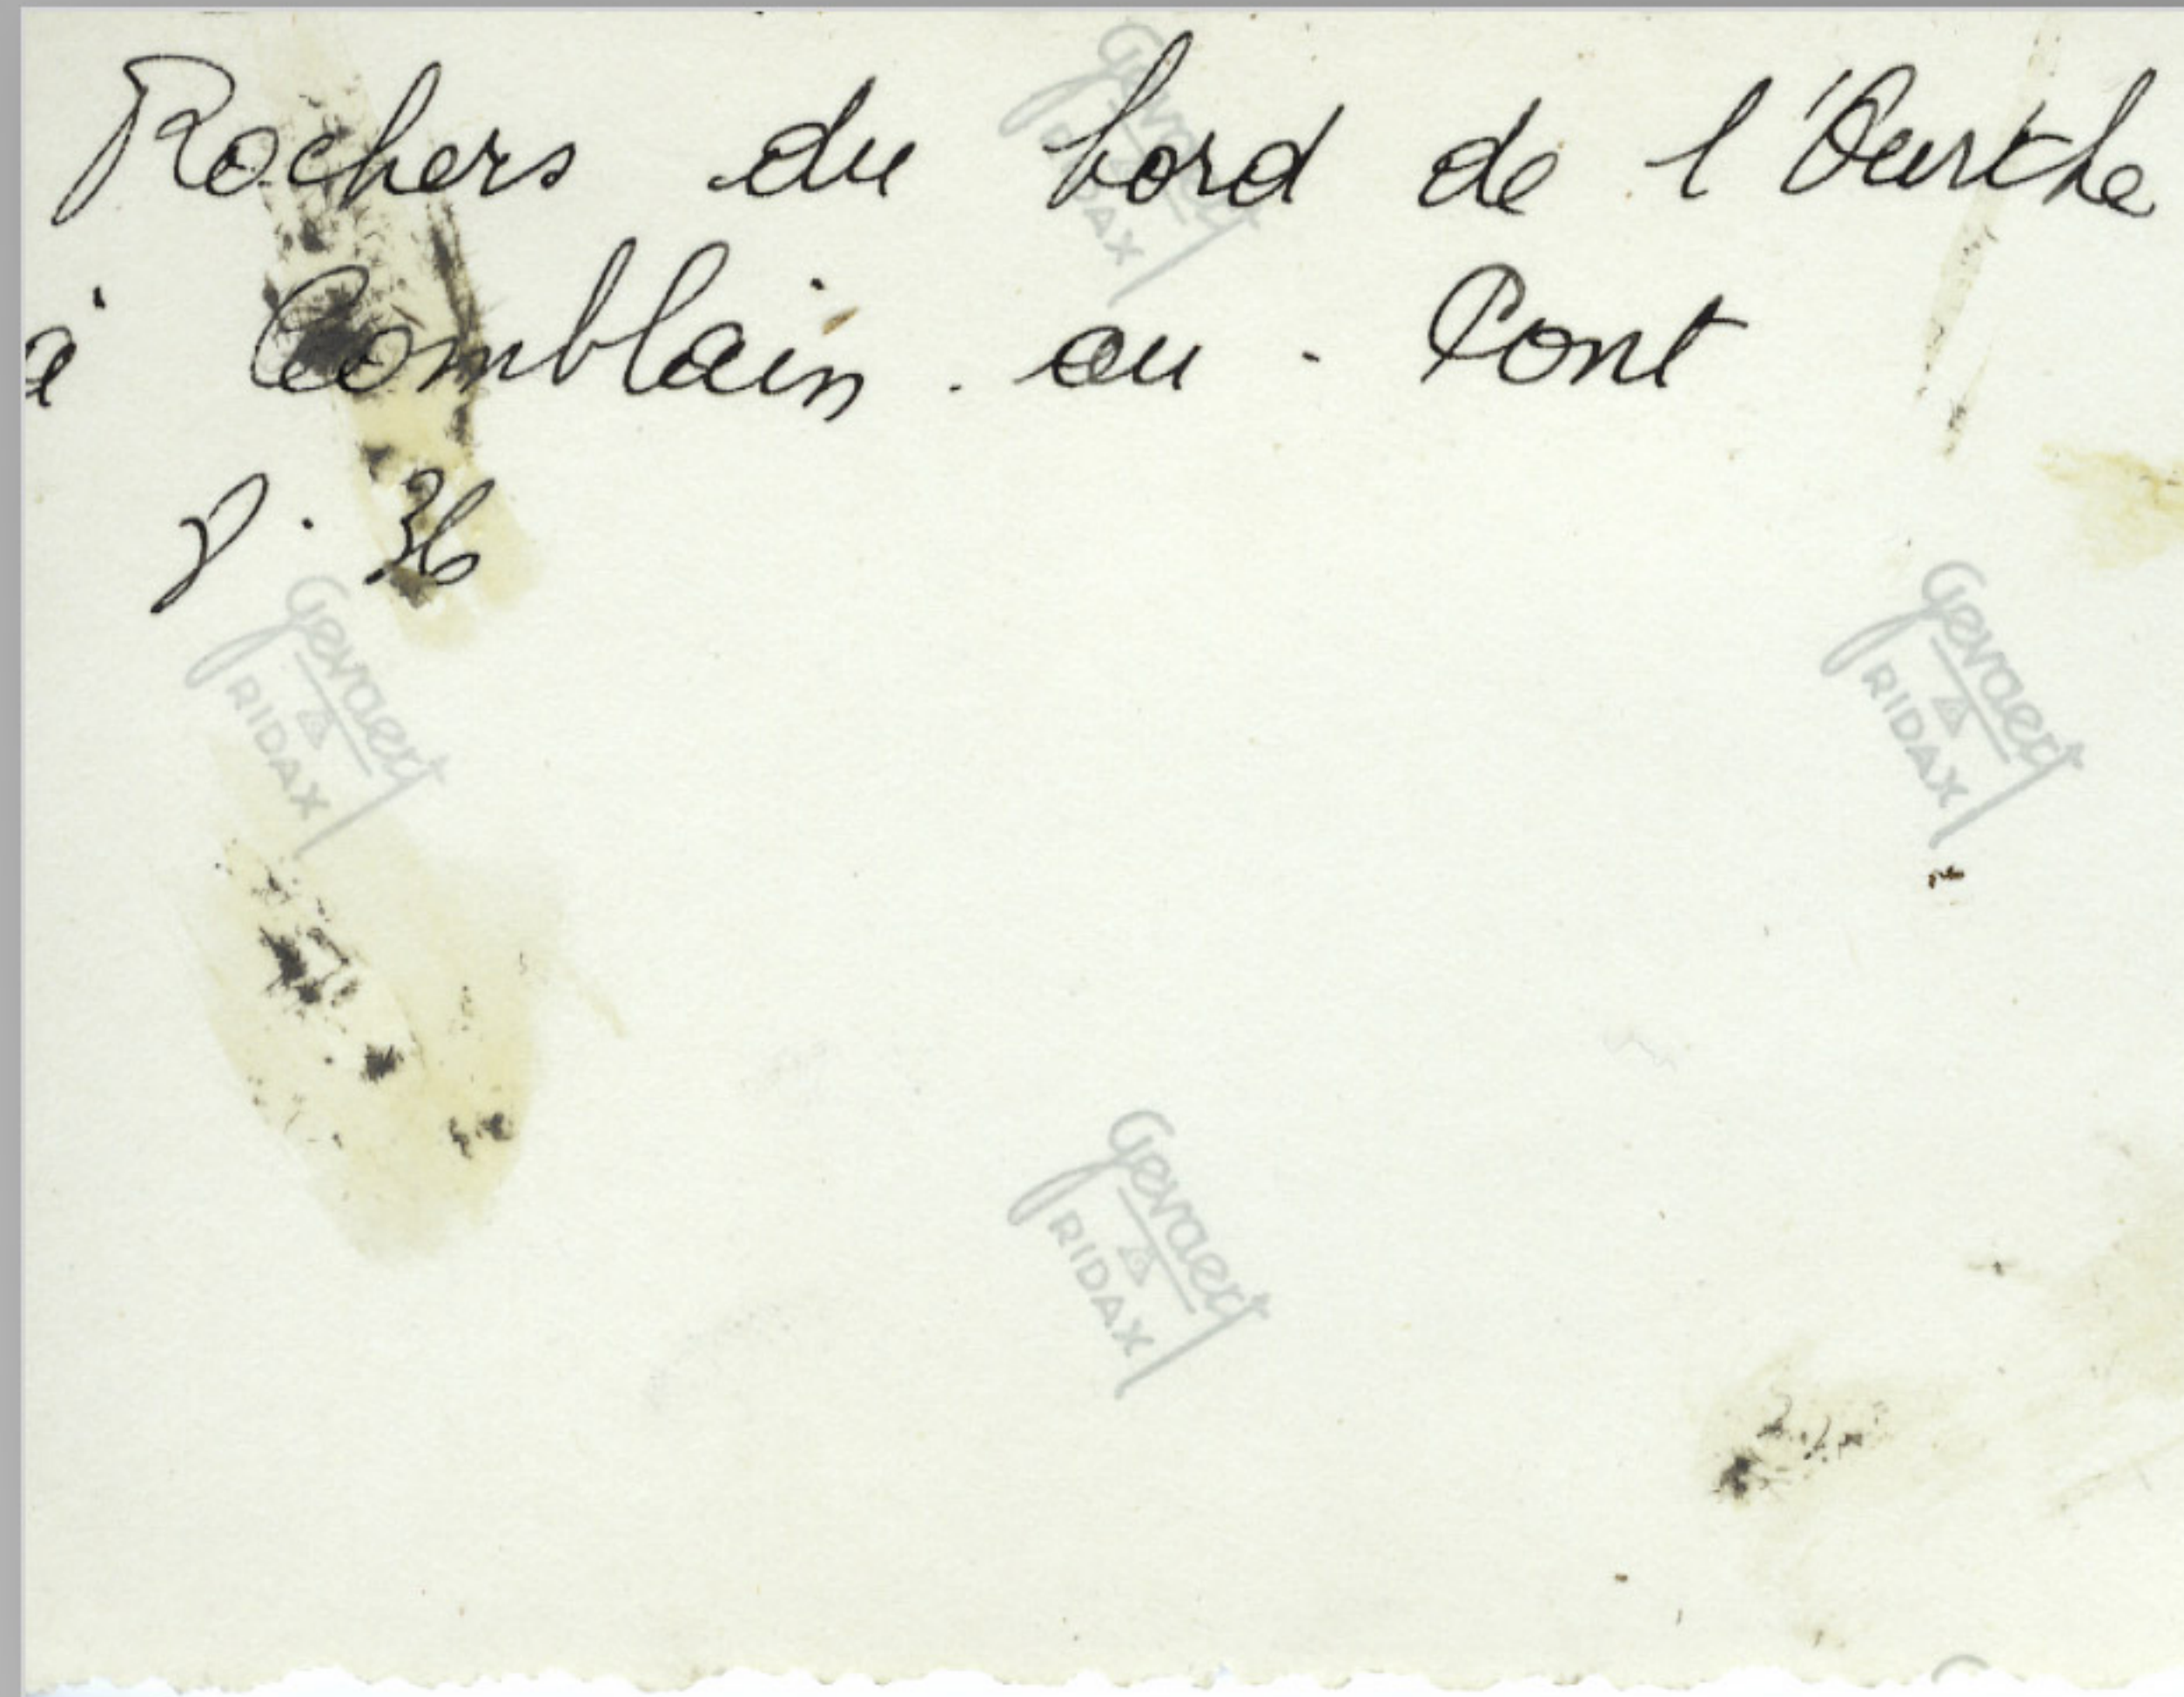 Rochers du bord de l'Ourthe
à Comblain-au-Pont
p. 36
Gevaert
RIDAX
Gevaert
RIDAX
Gevaert
RIDAX
Gevaert
RIDAX